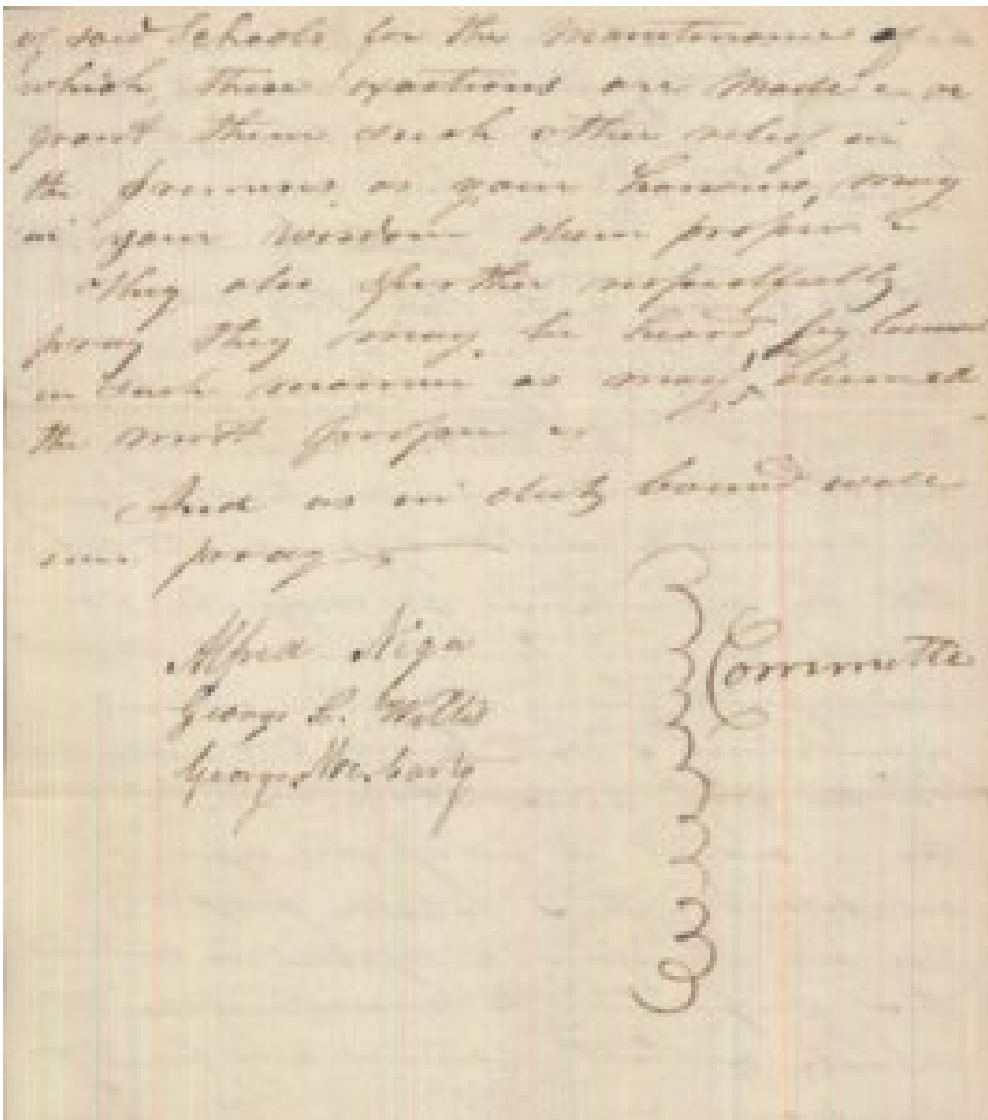 of said Schools for the Maintenance of
which these exactions are Made or
grant them such other relief in
the premises as your honours may
in your wisdom deem proper
They also further respectfully
pray they may be heard by
in such manner as may be deemed
the most proper
And as in duty bound will
ever pray
Alfred Niger
George L. Willis
George
Committe